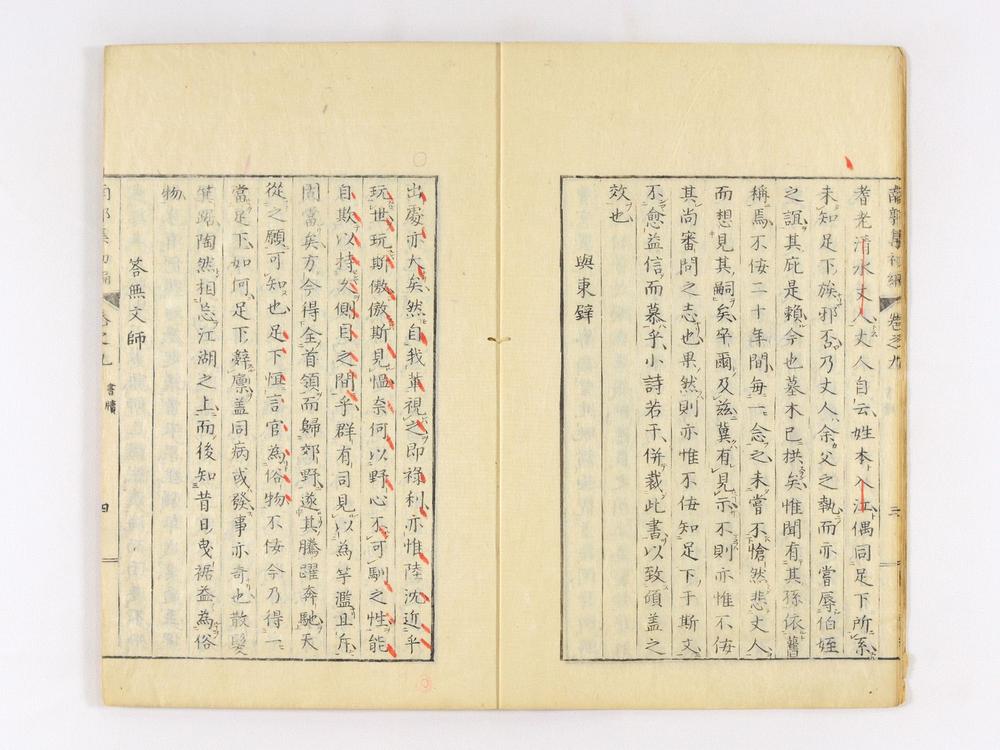 南郭集初編 卷之九 三
耆老淸水丈人丈人自云姓本入江偶同足下所系
未知足下族邪否乃丈人余父之執而亦嘗辱伯姪
之誼其庇是賴今也墓木已拱矣惟聞有其孫依舊
稱焉不佞二十年間每一念之未嘗不愴然悲丈人
而想見其嗣矣卒爾及玆冀有見示不則亦惟不佞
其尚審問之志也果然則亦惟不佞知足下于斯文
不愈益信而慕乎小詩若干併裁此書以致傾蓋之
效也
與東壁
出處亦大矣然自我輩視之即祿利亦惟陸沈近乎
玩世玩斯傲傲斯見慍奈何以野心不可馴之性能
自欺以持久側目之間乎群有司見以為竽濫且斥
罔當矣方今得全首領而歸郊野遂其騰躍奔馳夭
從之願可知也足下恒言官為俗物不佞今乃得一
當足下如何足下辭廩蓋同病或發事亦奇也散髮
箕踞陶然相忘江湖之上而後知昔日曳裾益為俗
物
答無文師
南郭集初編 卷之九 書牘 四